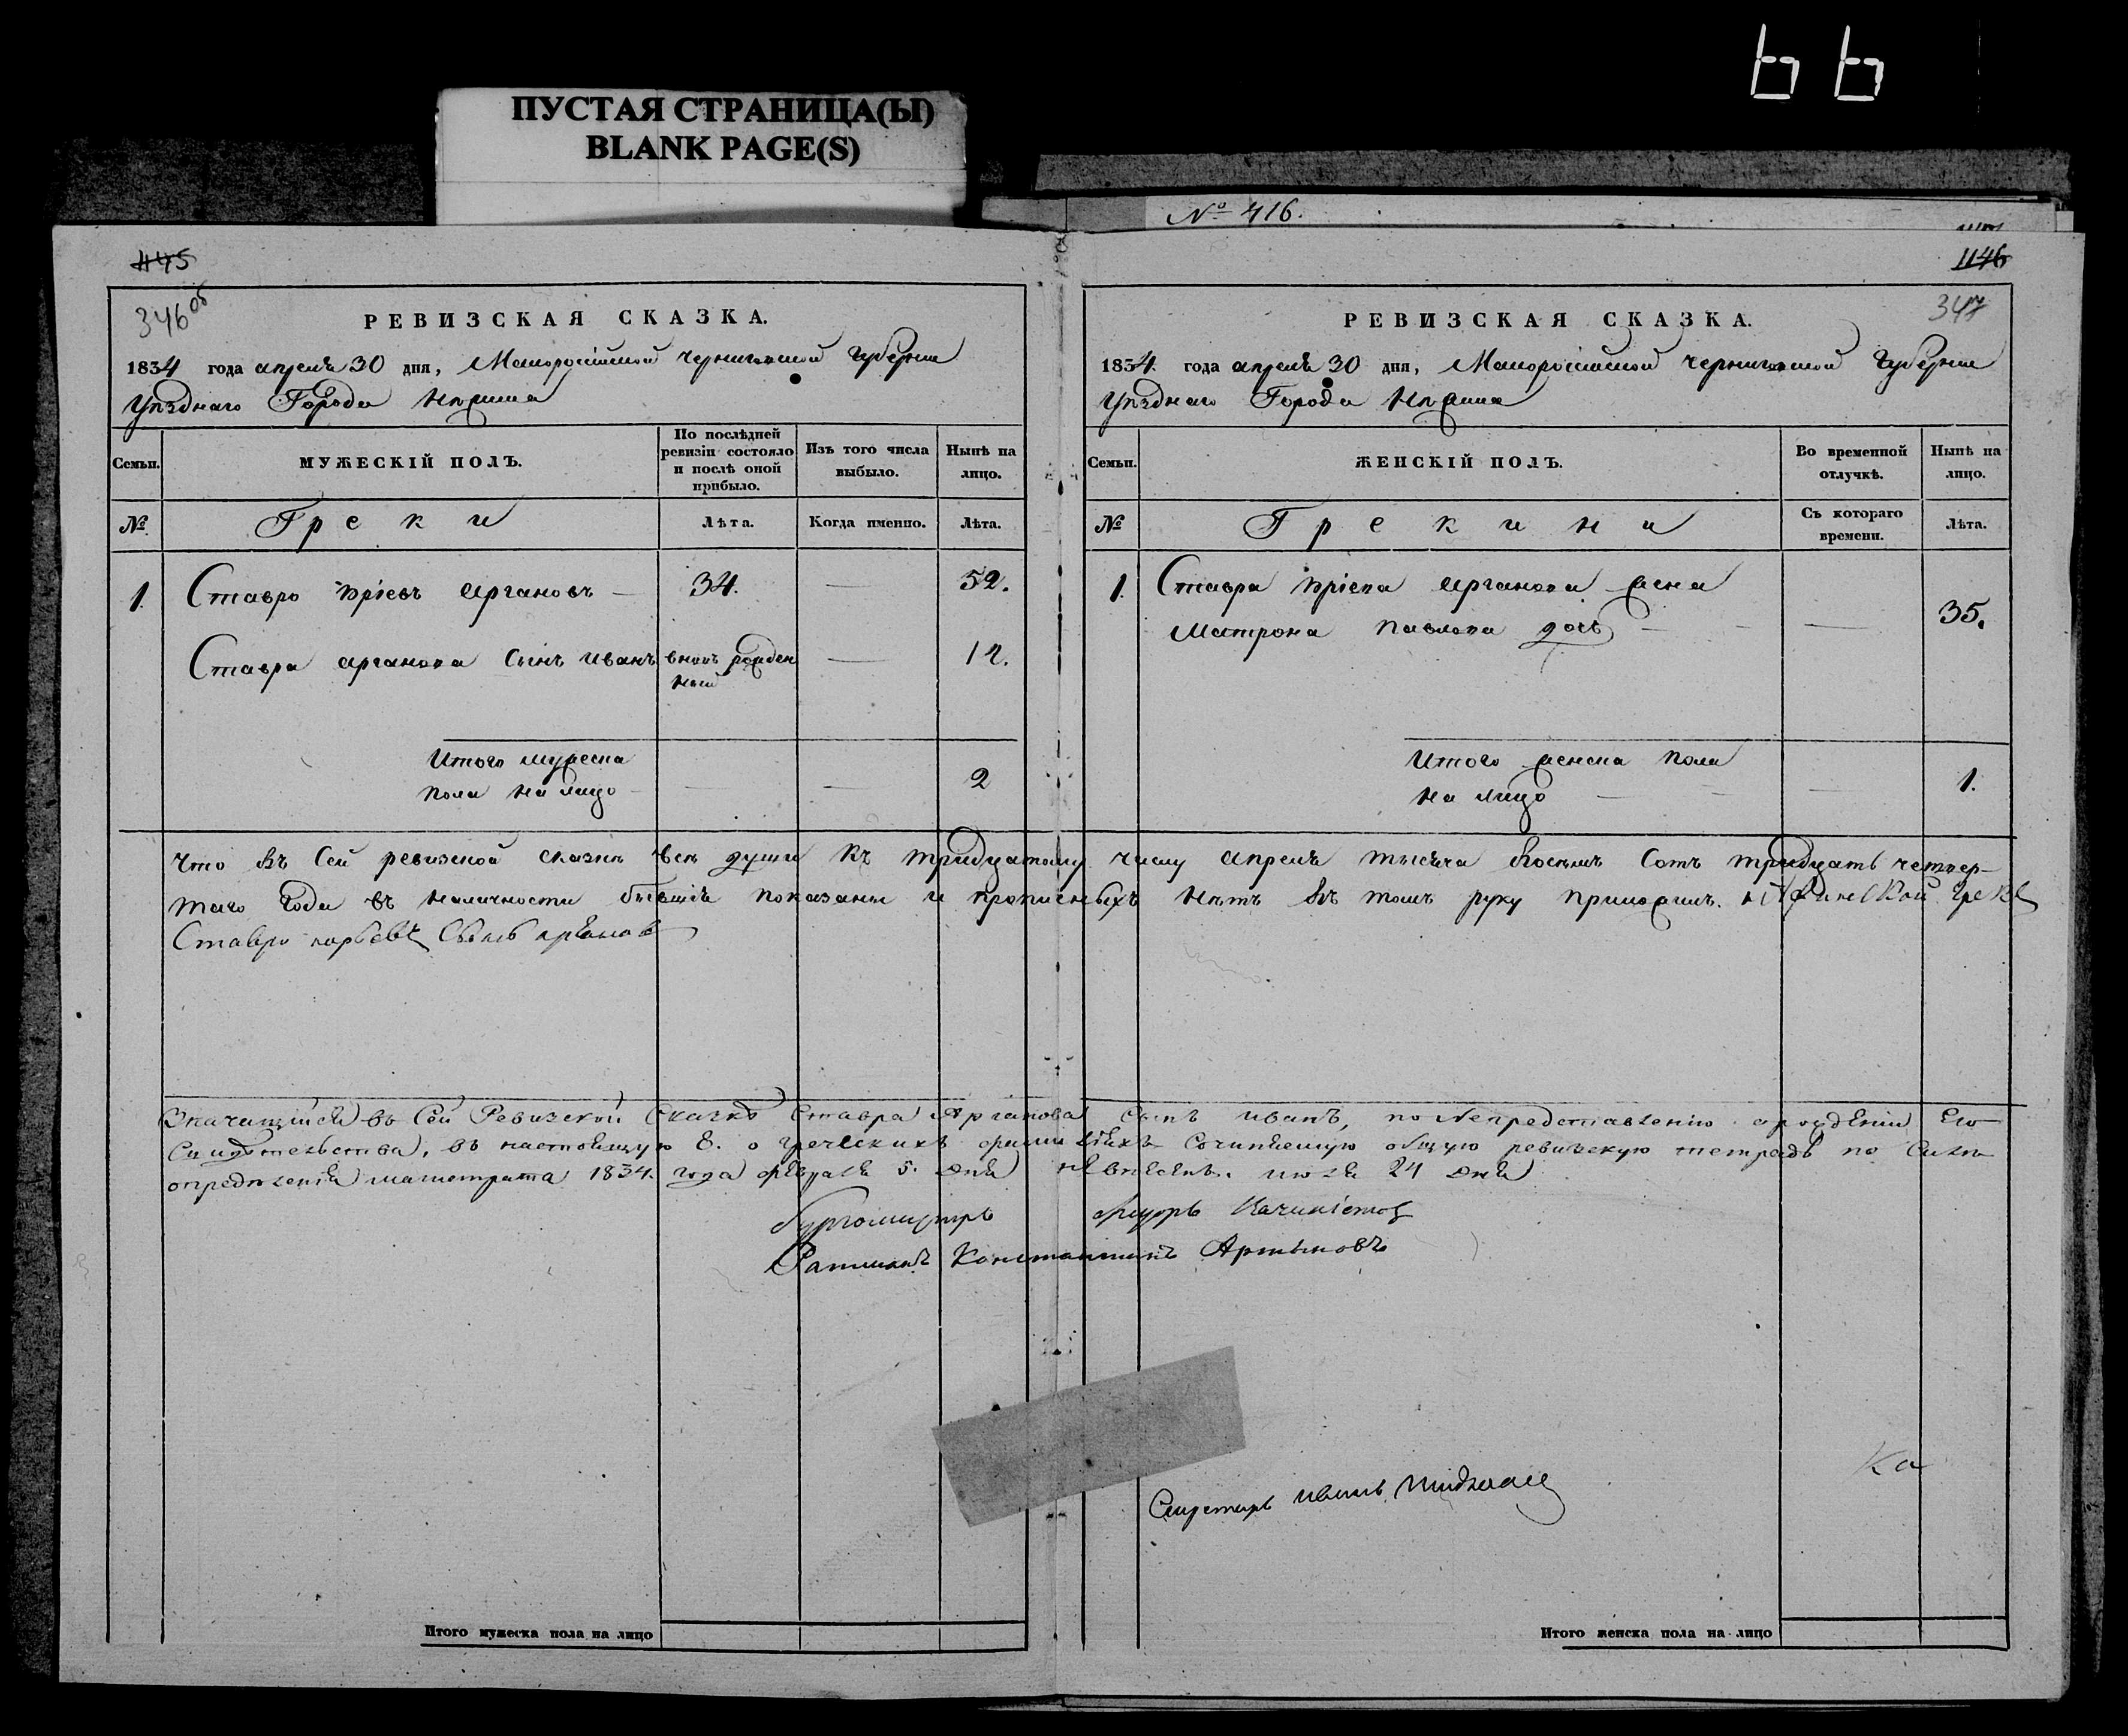 ПУСТАЯ СТРАНИЦА(Ы)
BLANK PAGE(S)
№ 416.
1145
346 об
РЕВИЗСКАЯ СКАЗКА.
1834 года апреля 30 дня, Малороссійской Черниговской Губерніи
Уѣзднаго Города Нѣжина
Семьи.
МУЖЕСКІЙ ПОЛЪ.
По послѣдней ревизіи состояло и послѣ оной прибыло.
Изъ того числа выбыло.
Нынѣ на лицо.
№
Греки
Лѣта.
Когда именно.
Лѣта.
1. Ставро ЮріевъАргановъ — 34. — 52.
Ставра Арганова сынъ Иванъ вновь рожден — 12.
ный
Итого мужеска
пола на лицо — — 2
1146
347
РЕВИЗСКАЯ СКАЗКА.
1834. года апреля 30 дня, Малороссійской Черниговской Губерніи
Уѣзднаго Города Нѣжина
Семьи.
ЖЕНСКІЙ ПОЛЪ.
Во временной отлучкѣ.
Нынѣ на лицо.
№
Грекини
Съ котораго времени.
Лѣта.
1. Ставра Юріева Арганова жена
Матрона Павлова дочь — — 35.
Итого женска пола
на лицо — — 1.
Что въ сей ревизской сказкѣ всѣ души къ тридцатому числу апреля тысяча восемь сотъ тридцать четвер-
таго года въ наличности бывшія показаны и прописныхъ нѣтъ въ томъ руку приложилъ. Нѣжинской грекъ
Ставро
Значащійся въ сей Ревизской Сказкѣ Ставра Арганова сынъ Иванъ, по непредставленію о рожденіи его
свидѣтельства, въ настоящую 8. о греческихъ фамиліяхъ сочиняемую общую ревизскую тетрадь по силѣ
опредѣленія магистрата 1834. года февраля 5. дня не внесенъ. июля 24 дня
Бургомистръ
Ратманъ Константинъ
Секретарь Иванъ
Итого мужеска пола на лицо
Итого женска пола на лицо